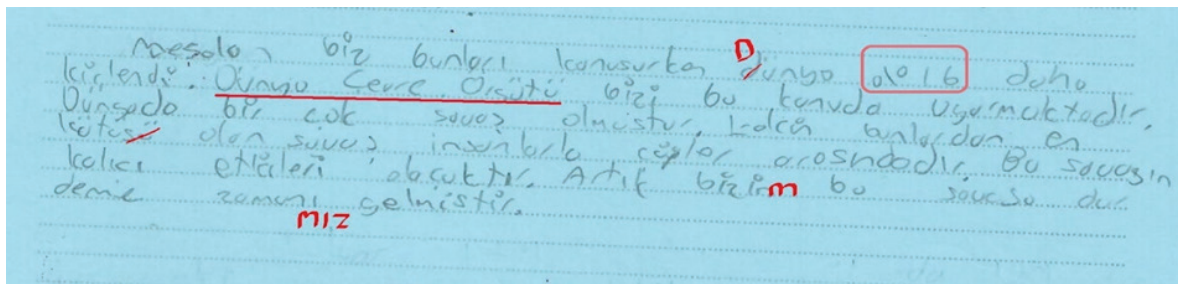 Mesela, biz bunları konuşurken D dünya %16 daha
kirlendi. Dünya Çevre Örgütü bizi bu konuda uyarmaktadır.
Dünyada bir çok savaş olmuştur. Lakin bunlardan en
kötüsü olan savaş insanlarla çöpler arasındadır. Bu savaşın
kalıcı etkileri olacaktır. Artık bizim m bu savaşa dur
deme zamanı gelmiştir.
mız